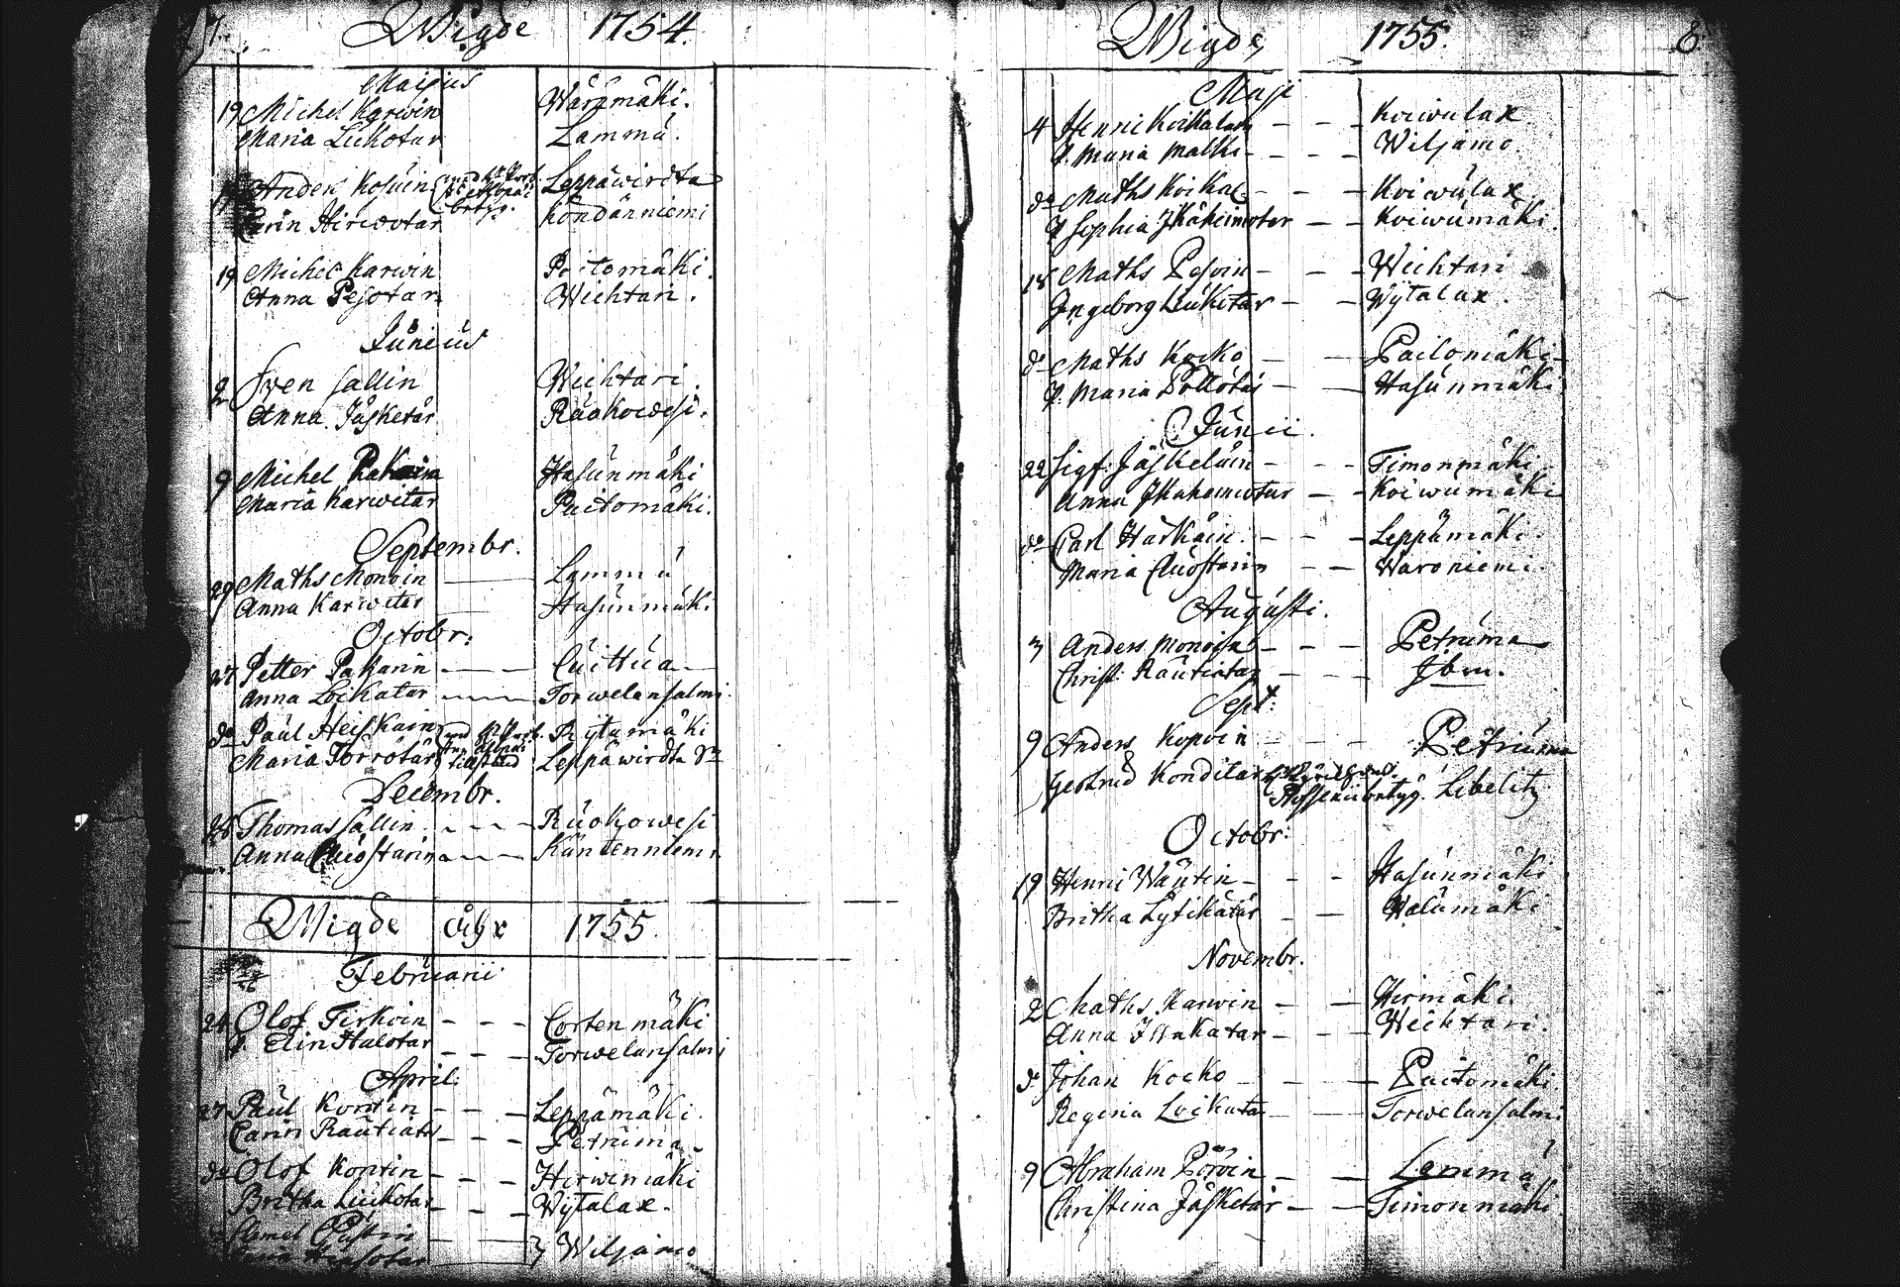 7.
Wigde 1754.
Majus
19 Michel Karwin Wäremäki.
Maria Lickotar Lammu.
Anders Kosuin Leppäwirdta
Carin Hirwotar Köndänniemi
19 Michel Karwin Paitomäki.
Anna Pesotar Wichtari.
Junius
2 Sven Sallin Wichtari.
Anna Jäsketär Ruokowesi.
9 Michel Hasunmäki
Maria Karwitar Paitomäki.
Septembr.
29 Maths Monoin Lammu
Anna Karwitar Hasunmäki
Octobr:
27 Petter Pakarin Cuittua
Anna Loikatar Torwelansalmi.
do Paul Heiskain Rytymäki
Maria Torrotar Leppäwirdta Sn
Decembr.
26 Thomas Sallin Ruokowesi
Anna Kantenniemi
Wigde åhr 1755.
Februarii
24 Olof Tirkoin Corten mäki
P. Elin Halotar Torwelansalmi
April.
27 Paul Kontin Leppämäki.
Carin Rautiatar Petruma
do Olof Kontin Hirwimäki
Britha Luckotar Wÿtalax.
Clemet Wiljamo
Wigde 1755. 8.
Maji
4 Henric Koikalain Koiwulax
P. Maria Malki Wiljamo.
do Maths Koikal Koiwulax
P. Sophia Koiwumäki.
18 Maths Pesoin Wichtari
Ingeborg Luckotar Wÿtalax.
do Maths Kocko Paitomäki
P. Maria Hasunmäki
Junii.
22 Sigf: Jäskeläin Timonmäki
Anna Koiwumäki
do Carl Harkain Leppämäki.
Maria Waroniemi.
Augusti.
3 Anders Monoin Petruma
Christ: Rautiatar Ibm.
Sept:
9 Anders Kopoin Petruma
Gertrud Konditar Libelitz
Octobr:
19 Henric Wäntin Hasunmäki
Britha Lytikätär Walumäki
Novembr.
2 Maths Karwin Hirmäki.
Anna Wichtari.
do Johan Kocko Paitomäki.
Regina Loikatar Torwelansalmi
9 Abraham Pöröin Lammu
Christina Jäsketär Timonmäki